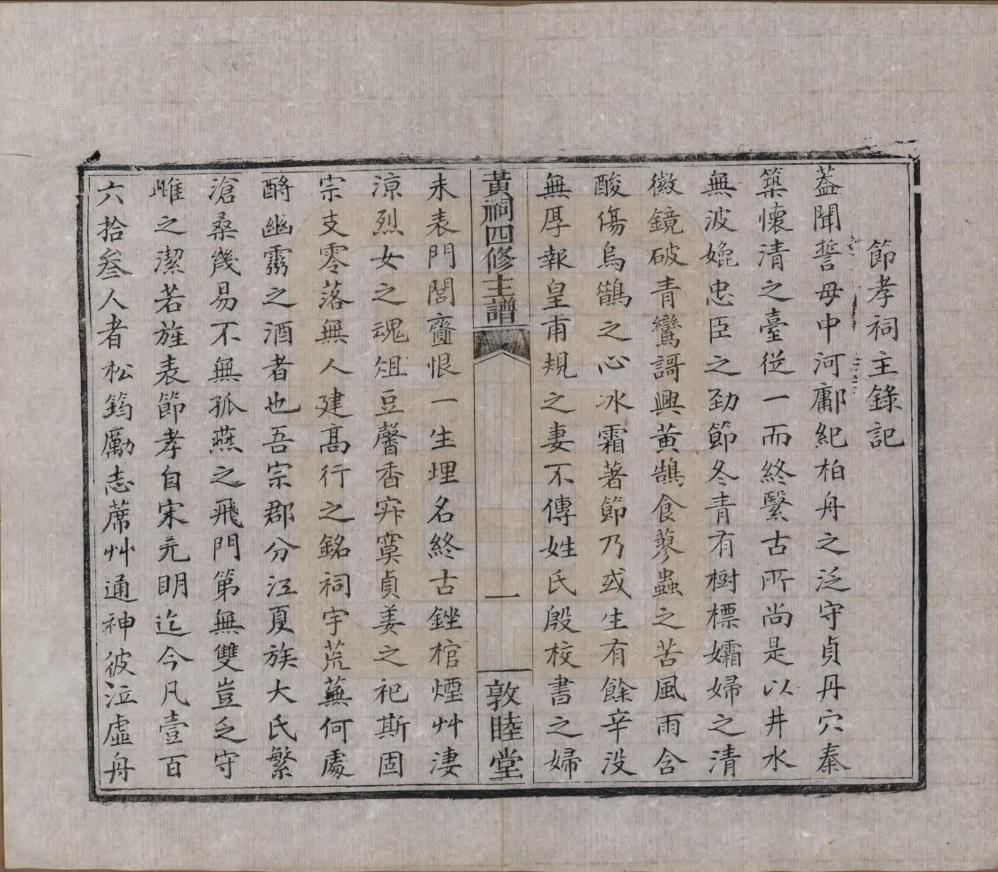 節孝祠主錄記
蓋聞誓母中河鄘紀柏舟之泛守貞丹穴秦
築懷清之臺從一而終繄古所尚是以井水
無波媲忠臣之勁節冬青有樹標孀婦之清
徽鏡破青鸞謌興黃鵠食蓼蟲之苦風雨含
酸傷烏鶴之心冰霜著節乃或生有餘辛没
無厚報皇甫規之妻不傳姓氏殷校書之婦
黃祠四修主譜
一
敦睦堂
未表門閭齎恨一生埋名終古銼棺煙艸淒
涼烈女之魂俎豆馨香寂寞貞姜之祀斯固
宗支零落無人建高行之銘祠宇荒蕪何處
酹幽𩆜之酒者也吾宗郡分江夏族大氏繁
滄桑幾易不無孤燕之飛門第無雙豈乏守
雌之潔若旌表節孝自宋元明迄今凡壹百
六拾叄人者松筠勵志蓆艸通神彼泣虛舟